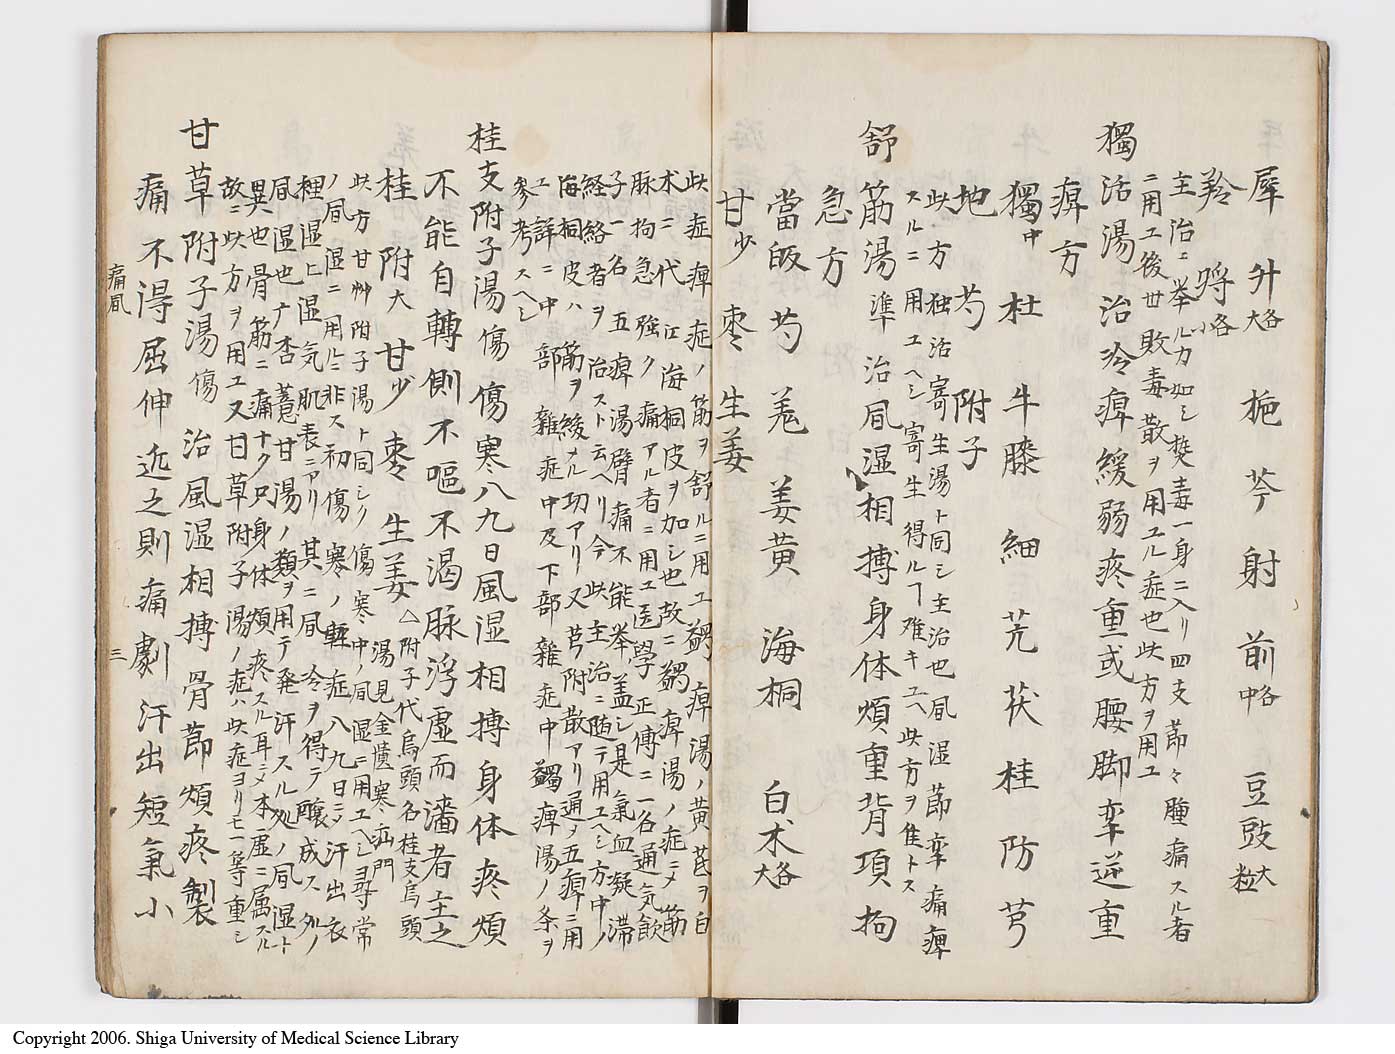 犀 升大各 梔 芩 射 前中各 豆豉大粒
羚 哷小各
主治ニ挙ルカ如シ熒毒一身ニ入リ四支節々腫痛スル者
ニ用エ後世敗毒散ヲ用ユル症也此方ヲ用ユ
獨活湯 治冷痺緩弱疼重或腰脚牽逆重
痺方
獨中 杜 牛膝 細 芃 茯 桂 防 芎
地 芍 附子
此方独活寄生湯ト同シ主治也凬湿節牽痛痺
スルニ用エヘシ寄生得ルヿ难キユヘ此方ヲ隹トス
舒筋湯準 治凬湿相搏身体煩重背項拘
急方
當皈 芍 羌 姜黄 海桐 白朮大各
甘少 枣 生姜
此症痺症ノ筋ヲ舒ルニ用エ蠲痺湯ノ黄芪ヲ白
朮ニ代エ海桐皮ヲ加シ也故ニ蠲痺湯ノ症ニメ筋
脉拘急強ク痛アル者ニ用ユ医學正傳ニ一名通気飲
子一名五痺湯臂痛不能挙盖シ是氣血凝滞
経絡者ヲ治スト云ヘリ今此主治ニ随テ用エヘシ方中ノ
海桐皮ハ筋ヲ緩メル功アリ又芎附散アリ通メ五痺ニ用
エ詳ニ中部雜症中及下部雜症中蠲痺湯ノ条ヲ
参考スヘシ
桂支附子湯傷 傷寒八九日風湿相搏身体疼煩
不能自轉側不嘔不渇脉浮虚而濇者主之
桂 附大 甘少 枣 生姜 △附子代烏頭名桂支烏頭
湯見金匱寒疝門
此方甘艸附子湯ト同シク傷寒中ノ凬湿ニ用エヘシ尋常
ノ凬湿ニ用ルニ非ス初傷寒ノ軽症八九日ニシ汗出衣
裡湿ヒ湿気肌表ニアリ其ニ凬冷ヲ得テ醸成ス外ノ
凬湿也ナ杏薏甘湯ノ類ヲ用テ発汗スル処ノ凬湿ト
異也骨筋ニ痛ナク只身体煩疼スル耳ニメ本虚ニ属スル
故ニ此方ヲ用ユ又甘草附子湯ノ症ハ此症ヨリモ一等重シ
甘草附子湯傷 治風湿相搏骨節煩疼掣
痛不得屈伸近之則痛劇汗出短氣小
痛凬
三
Copyright 2006. Shiga University of Medical Science Library